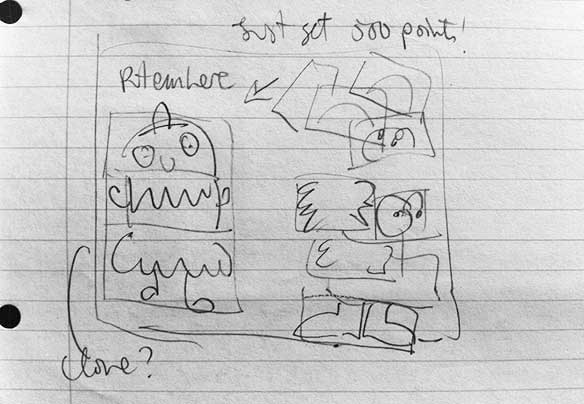 Just get 500 points!
Put em here
Clone?